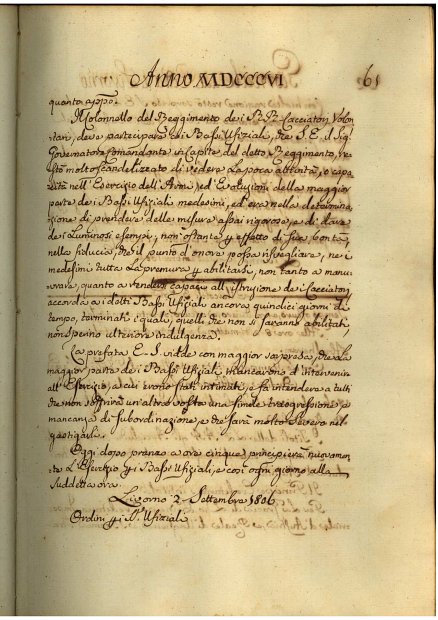 Anno MDCCCVI
61
quanto appo.
Il Colonnello del Reggimento dei RR. Cacciatori Volon
tari, deve partecipare ai Bassi Ufiziali, che S. E. il Sigr.
Governatore Comandante in Capite del detto Reggimento, re
stò molto scandalizzato di vedere la poca attività, e capa
cità nell'Esercizio dell'Armi, ed Evoluzioni della maggior
parte dei Bassi Ufiziali medesimi, ed era nella determina
zione di prendere delle misure assai rigorose, e di dare
dei luminosi esempi, non ostante p effetto di sua bontà,
nella fiducia, che il punto d'onore possa risvegliare, nei
medesimi tutta la premura p abilitarsi, non tanto a manu
vrare, quanto a rendersi capaci all'istruzione dei Cacciatori
accorda ai dtti Bassi Ufiziali ancora quindici giorni di
tempo, terminati i quali, quelli che non si saranno abilitati
non sperino ulteriore indulgenza.
La prefata E. S. vidde con maggior sorpresa, che la
maggior parte dei Bassi Ufiziali mancarono d'intervenire
all'Esercizio, a cui erano stati intimati, e fa intendere a tutti
che non soffrirà un'altra volta una simile trasgressione, e
mancanza di subordinazione, e che sarà molto severo nel
gastigarli.
Oggi dopo pranzo a ore cinque principierà nuovamen
te l'Esercizio p i Bassi Ufiziali, e così ogni giorno alla
suddetta ora.
Livorno 2. Settembre 1806
Ordini p i SS.ri Ufiziali